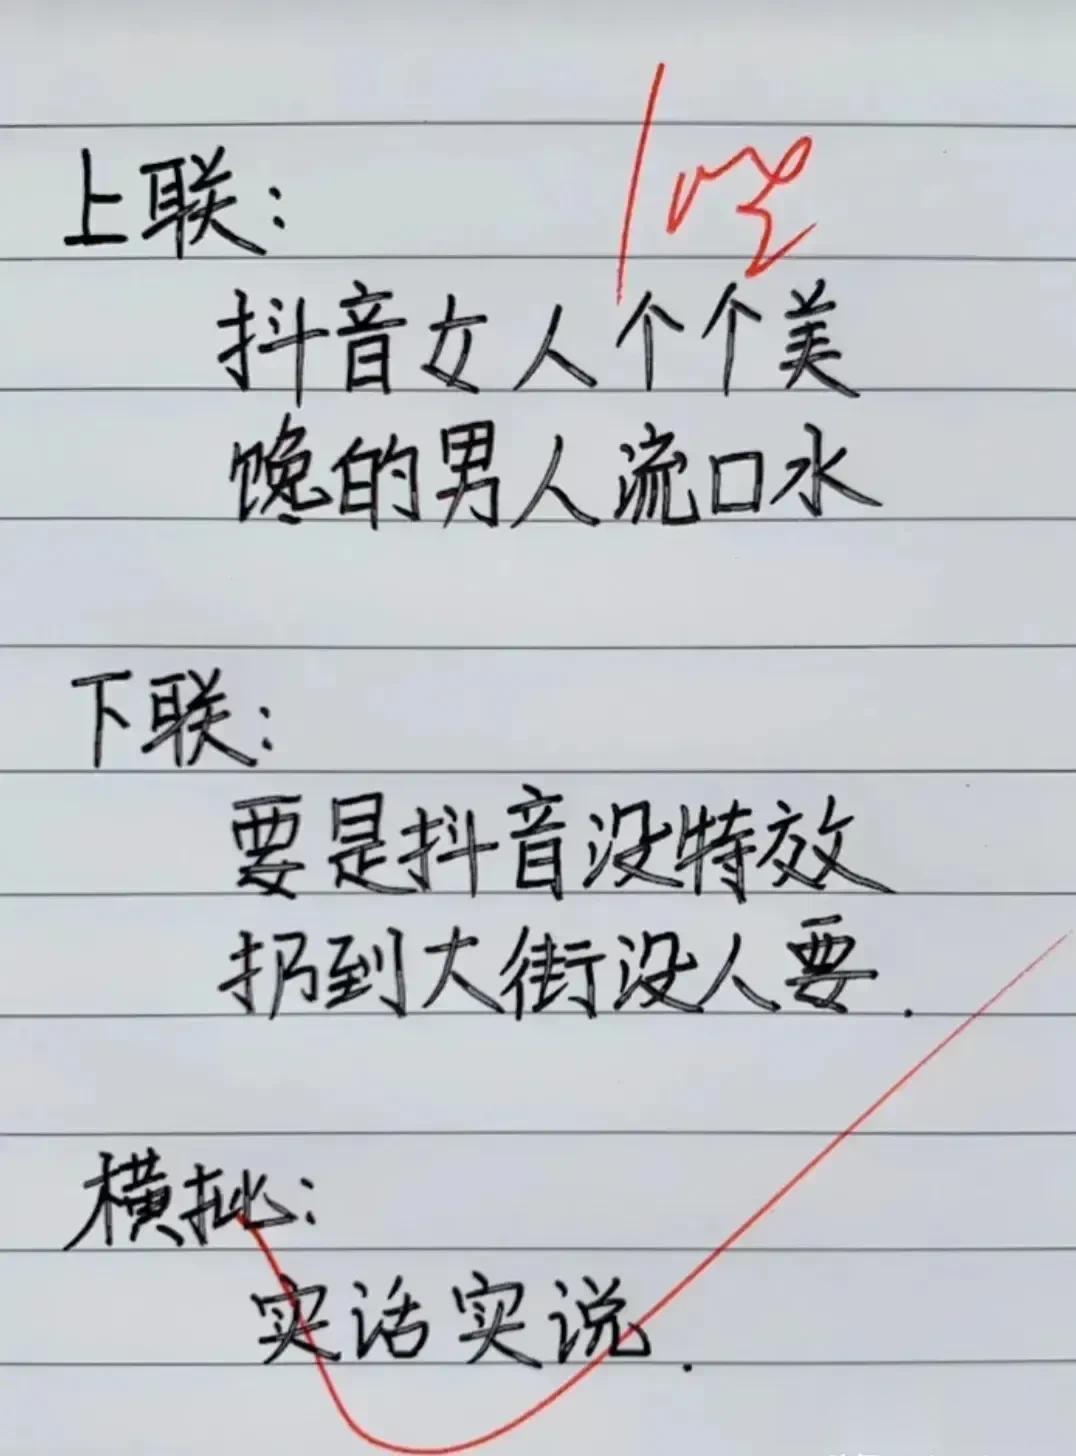 上联:
抖音女人个个美
馋的男人流口水
下联:
要是抖音没特效
扔到大街没人要.
横批:
实话实说.